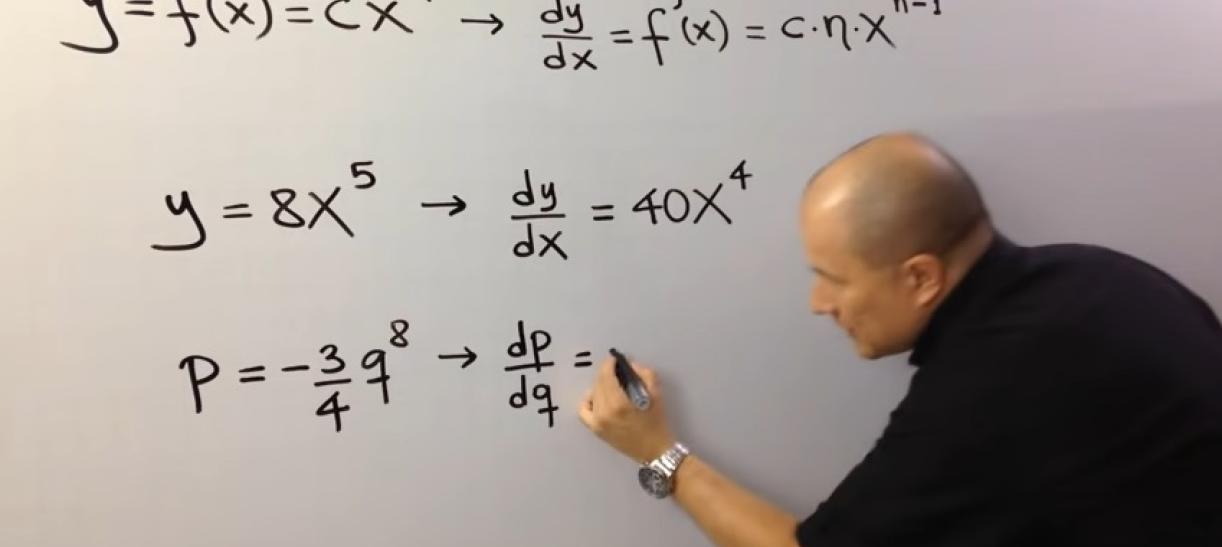 y = f(x) = cx → dy/dx = f'(x) = c·n·x^(n-1)
y = 8x^5 → dy/dx = 40x^4
p = -3/4 q^8 → dp/dq =